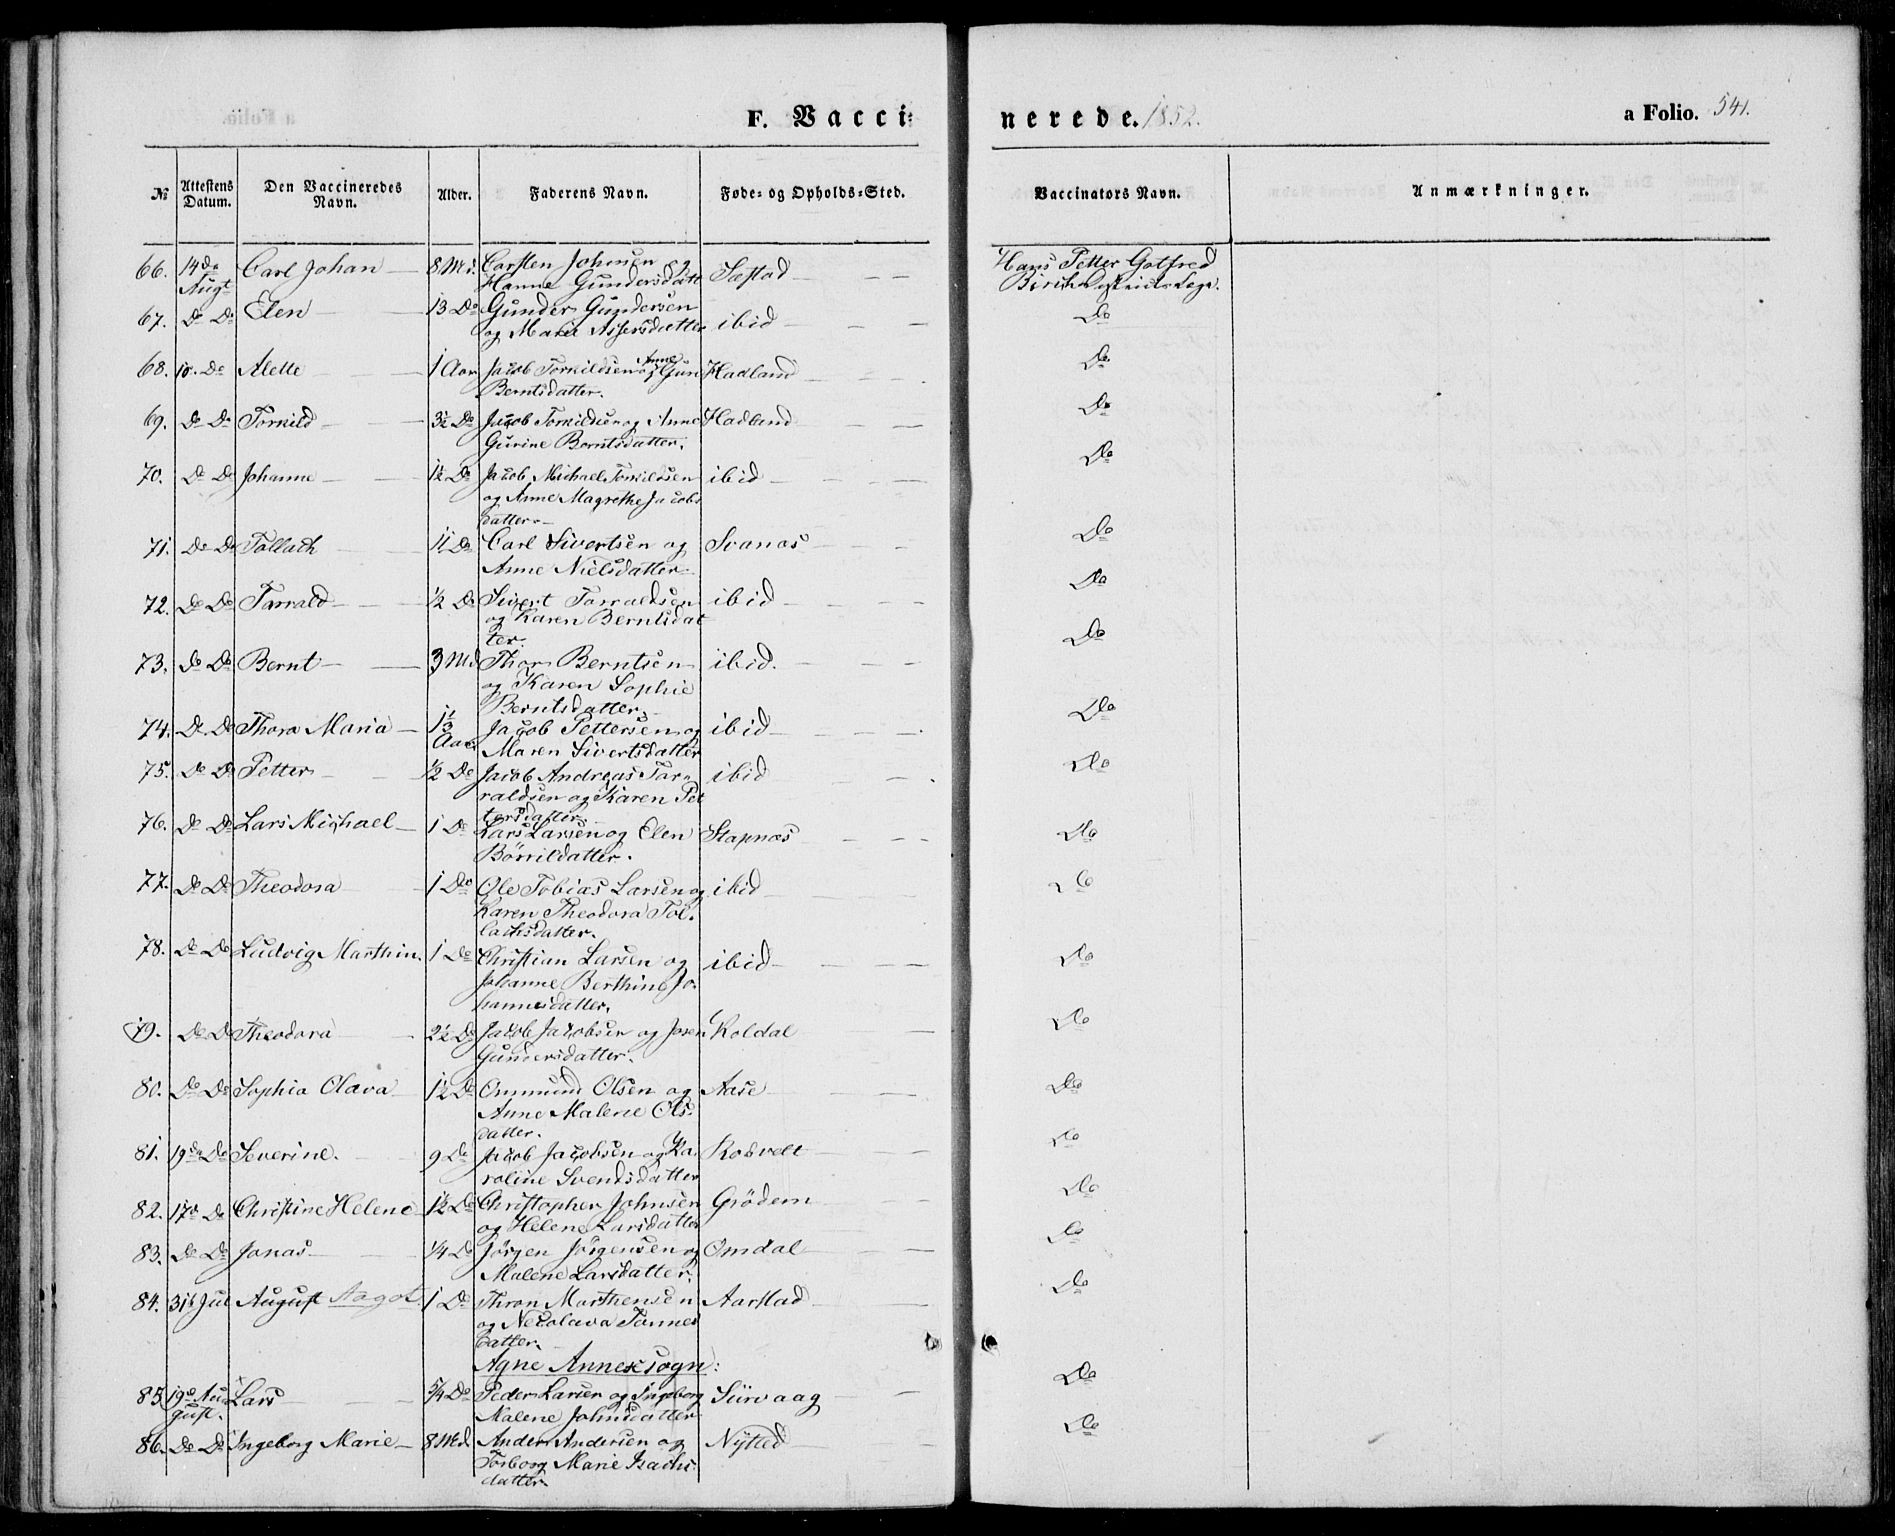 F. Vacci- nerede. 1852. a Folio. 541.
№ Attestens Datum. Den Vaccineredes Navn. Alder. Faderens Navn. Føde- og Opholds-Sted. Vaccinators Navn. Anmærkninger.
66. 14de Augt Carl Johan — 8 Md. Carsten Johnsen og Sæstad — Hans Petter Gotfred
Hanne Gundersdatt
67. Do Do Elen — 13 Do Gunder Gundersen ibid — Do
og Maria Assersdatter
68. 18. Do Alette — 1 Aar Jacob Torkildsen og Anne Gun Hadland — Do
Berntsdatter.
69. Do Do Torkild — 3½ Do Jacob Torkildsen og Anne Hadland — Do
Gurine Berntsdatter.
70. Do Do Johanne — 1½ Do Jacob Michael Torkildsen ibid — Do
og Anne Magrethe Jacobs
datter —
71. Do Do Tollach — Do Carl Sivertsen og Svanæs — Do
Anne Nielsdatter
72. Do Do Tarrald — ½ Do Sivert Tarraldsen ibid — Do
og Karen Berntsdat
ter.
73. Do Do Bernt — 3 Md Thor Berntsen ibid. — Do
og Karen Sophie
Berntsdatter.
74. Do Do Thora Maria — 1⅓ Aar Jacob Pettersen og ibid — Do
Maren Sivertsdatter
75. Do Do Petter — ½ Do Jacob Andreas Tar- ibid — Do
raldsen og Karen Pet
tersdatter
76. Do Do Lars Michael — 1 Do Lars Larsen og Elen Stapnæs — Do
Børrildatter.
77. Do Do Theodora — 1 Do Ole Tobias Larsen og ibid — Do
Karen Theodora Tol-
lachsdatter.
78. Do Do Ludvig Marthin. 1 Do Christian Larsen og ibid — Do
Johanne Berthine Jo-
hannesdatter.
79. Do Do Theodora — 2½ Do Jacob Jacobsen og Koldal Do
Gundersdatter.
80. Do Do Sophia Olava 1½ Do Ommund Olsen og Aase — Do
Anne Malene Ols-
datter.
81. 19de Do Severine. 9 Do Jacob Jacobsen og Ka- Rodvelt — Do
roline Svendsdatter
82. 17de Do Christine Helene 1½ Do Christopher Johnsen Grödem — Do
og Helene Larsdatter
83. Do Do Jonas — ¼ Do Jörgen Jörgensen og Omdal — Do
Malene Larsdatter.
84. 31te Jul August Aagot 1 Do Thron Marthensen Aarstad — Do
og Nicolava Tonnes
datter.
Agne Annexsogn:
85. 19de August. Lars — 5/4 Do Peder Larsen og Ingeborg Siirvaag — Do
Malene Johnsdatter
86. Do Do Ingeborg Marie — 8 Md. Anders Andersen og Nÿtled — Do
Torborg Marie Isachs-
datter